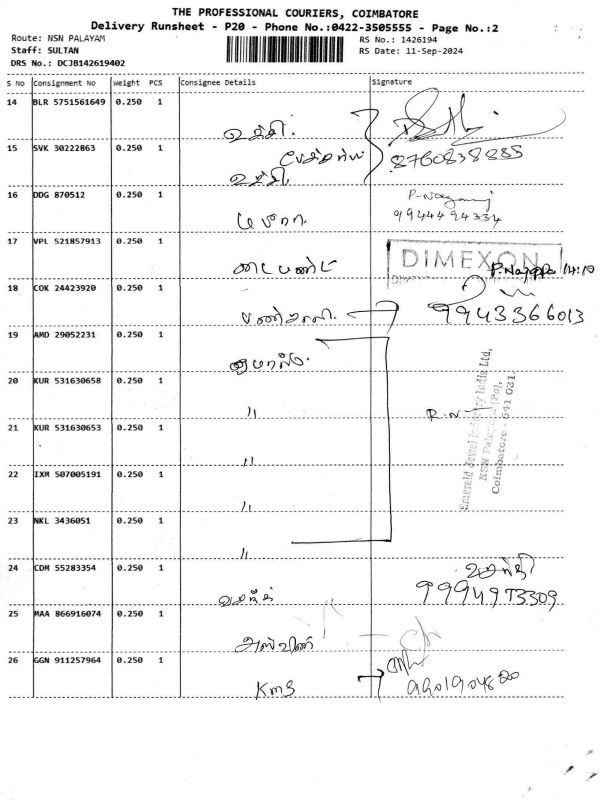 THE PROFESSIONAL COURIERS, COIMBATORE
Delivery Runsheet - P20 - Phone No.:0422-3505555 - Page No.:2
Route: NSN PALAYAM
RS No.: 1426194
Staff: SULTAN
RS Date: 11-Sep-2024
DRS No.: DCJB142619402
S No Consignment No Weight PCS Consignee Details Signature
14 BLR 5751561649 0.250 1
15 SVK 30222863 0.250 1
8760838885
16 DDG 870512 0.250 1
9944494334
17 VPL 521857913 0.250 1
DIMEXON
14:10
18 COK 24423920 0.250 1
9943366013
19 AMD 29052231 0.250 1
20 KUR 531630658 0.250 1
"
Emerald Jewel Industry India Ltd,
NSN Palayam (Po),
Coimbatore - 641 031.
21 KUR 531630653 0.250 1
"
22 IXM 507005191 0.250 1
"
23 NKL 3436051 0.250 1
"
24 CDM 55283354 0.250 1
9994973309
25 MAA 866916074 0.250 1
அஸ்வின்
26 GGN 911257964 0.250 1
KMS